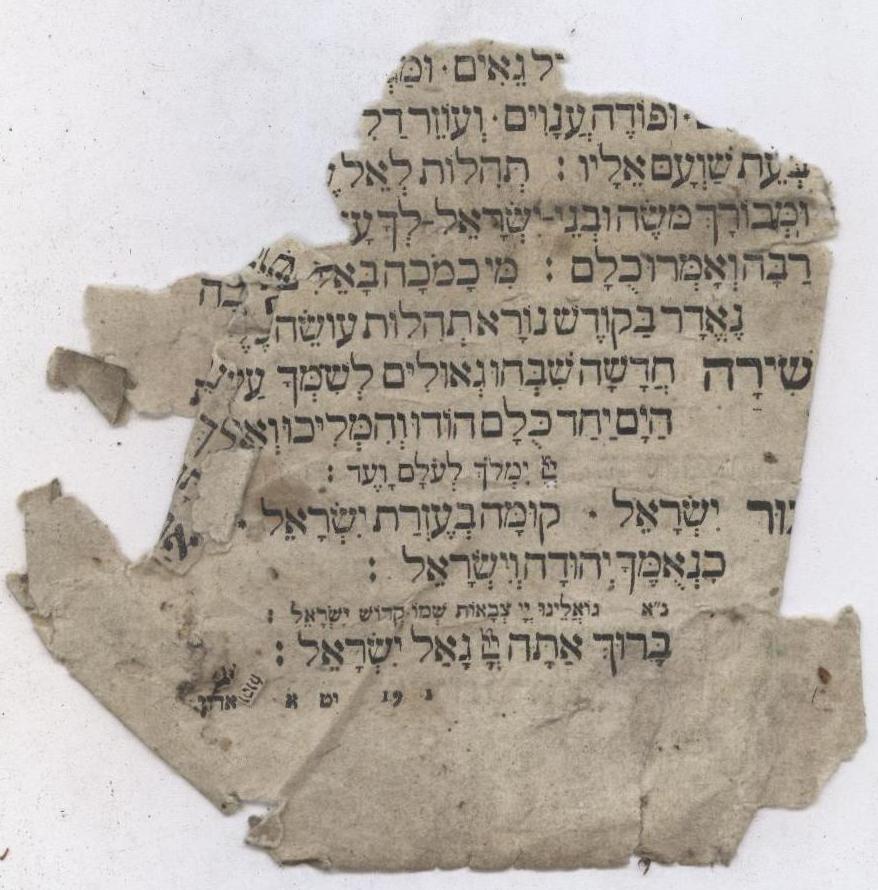 גֵאִים · וּמַגְ
וּפוֹדֶה עֲנָוִים · וְעוֹזֵר דַלִּ
בְּעֵת שַׁוְּעָם אֵלָיו : תְּהִלּוֹת לְאֵל
וּמְבוֹרָךְ מֹשֶׁה וּבְנֵי יִשְׂרָאֵל לְךָ עָ
רַבָּה וְאָמְרוּ כֻלָּם : מִי כָמֹכָה בָּאֵלִ
נֶאְדָּר בַּקּוֹדֶשׁ נוֹרָא תְהִלּוֹת עוֹשֵׂה
שִׁירָה חֲדָשָׁה שִׁבְּחוּ גְאוּלִים לְשִׁמְךָ עַל
הַיָּם יַחַד כֻּלָּם הוֹדוּ וְהִמְלִיכוּ וְאָמְרוּ
יְיָ יִמְלֹךְ לְעֹלָם וָעֶד :
צוּר יִשְׂרָאֵל · קוּמָה בְּעֶזְרַת יִשְׂרָאֵל ·
כִנְאֻמֶךָ יְהוּדָה וְיִשְׂרָאֵל :
נ״א גוֹאֲלֵינוּ יְיָ צְבָאוֹת שְׁמוֹ קְדוֹשׁ יִשְׂרָאֵל :
בָּרוּךְ אַתָּה יְיָ גָאַל יִשְׂרָאֵל :
יט א אדני